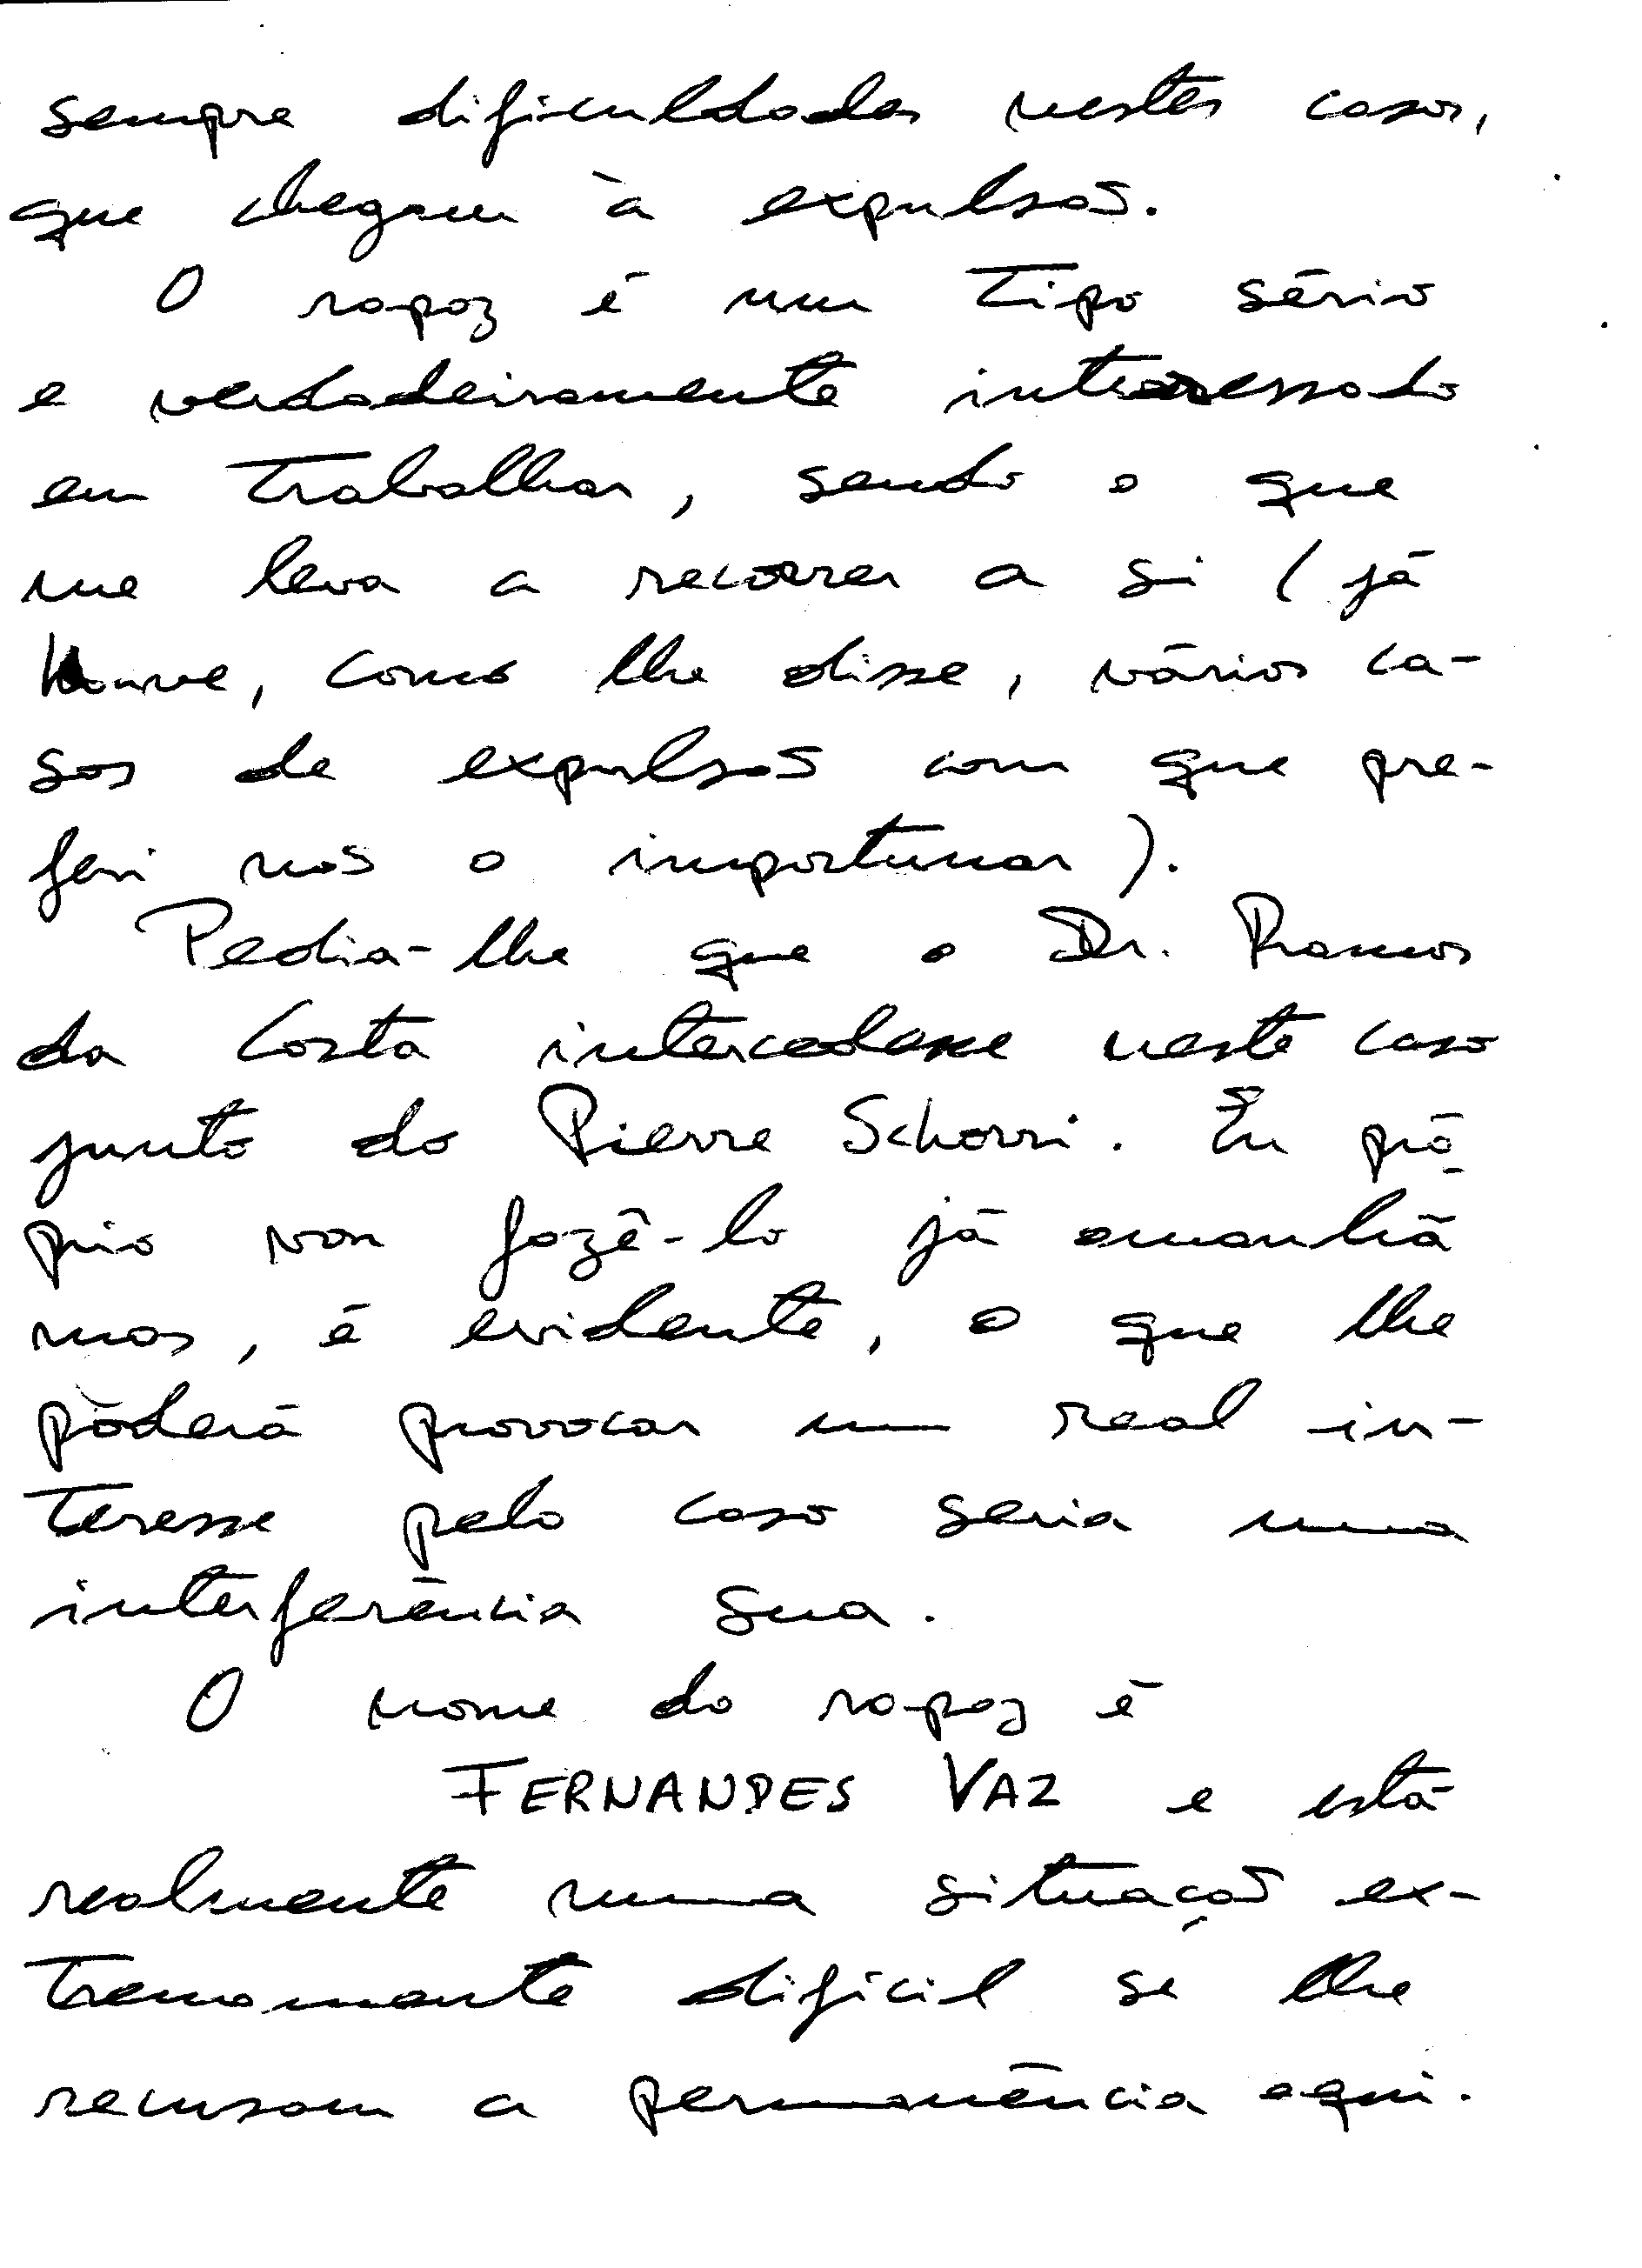 sempre dificuldades nestes casos,
que chegam à expulsão.
O rapaz é um tipo sério
e verdadeiramente interessado
em trabalhar, sendo o que
me leva a recorrer a si (já
houve, como lhe disse, vários ca-
sos de expulsão com que pre-
feri não o importunar).
Pedia-lhe que o Dr. Ramos
da Costa intercedesse neste caso
junto do Pierre Schorri. Eu pró-
prio vou fazê-lo já amanhã
mas, é evidente, o que lhe
poderá provocar um real in-
teresse pelo caso seria uma
interferência sua.
O nome do rapaz é
FERNANDES VAZ e está
realmente numa situação ex-
tremamente difícil se lhe
recusam a permanência aqui.